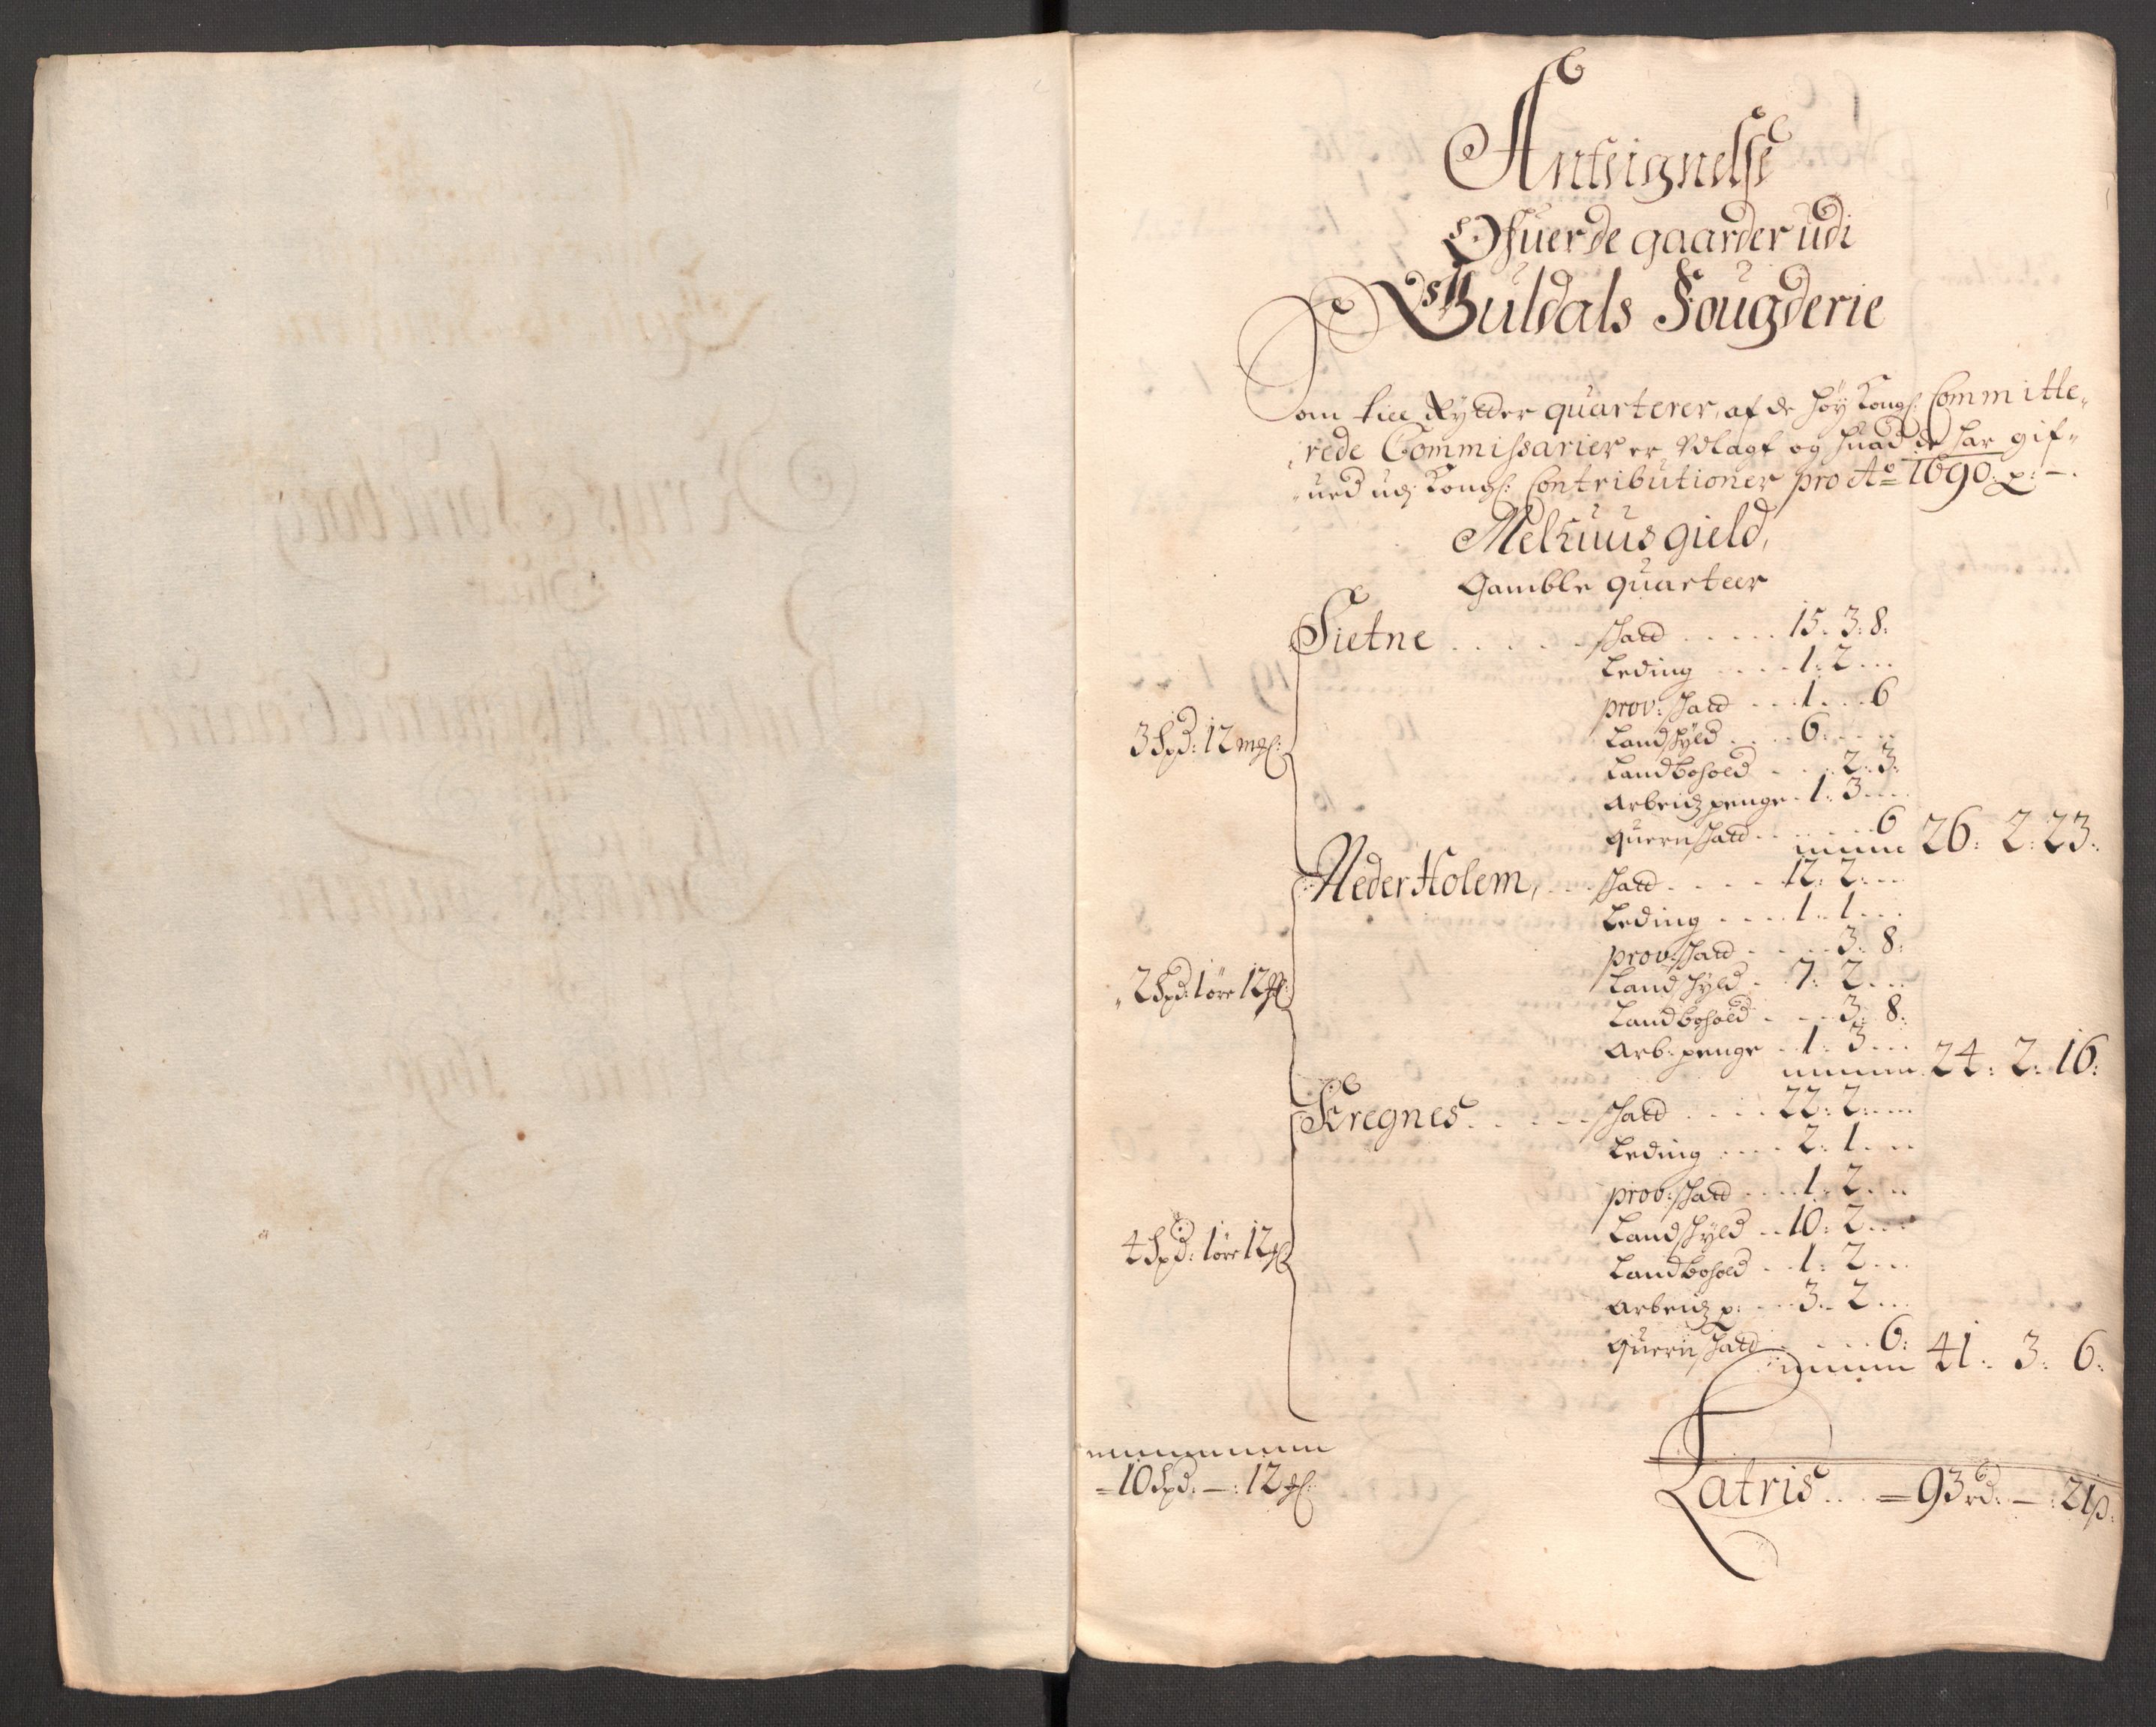 Anteignelse
Ofuer de gaarder udi
Guldals Fougderie
Som till Rytter quarterer, af de høy Kongl: Committe„
„rede Commissarier er Udlagt og huad de har gif„
„ued udj Kongl: Contributioner pro Ao 1690. p: –.
Melhuus gield,
Gamble quarteer
Fietne . . . . . skatt . . . . . 15. 3: 8:
Leding . . . . 1: 2 . . .
prov: skatt . . . 1 . . . 6
3 spd: 12 mgl: Landskyld . . . . 6: . . . .
Landbohold . . . . 2: 3:
Arbeidz penge . 1: 3 . . . .
Quernskatt . . . . . . . 6 26: 2: 23:
Neder Holem, . . . skatt . . . . . 12: 2: . . .
Leding . . . . 1: 1 . . .
prov: skatt . . . . 3: 8:
2 spd: 1 øre 12 gl: Landskyld . 7: 2 . . .
Landbohold . . . 3: 8:
Arb: penge . . 1: 3 . . . 24: 2: 16:
Kregnes . . . . . skatt . . . . 22: 2: . . .
Leding . . . . 2: 1 . . .
prov: skatt . . . . 1: 2 . . .
4 spd: 1 øre 12 gl Landskyld . . 10: 2 . . .
Landbohold . . 1: 2 . . .
Arbeidz p: . . . 3: 2 . . .
Quernskatt . . . . . 6: 41: 3: 6:
= 10 spd: – : 12 gl:
Latris . . . = 93 rd: – : 21 s: